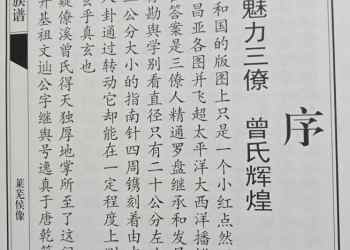 序
魅力三僚 曾氏辉煌
和国的版图上只是一个小红点然
昌亚各图并飞超太平洋大西洋播
答案是三僚人精通罗盘继承和发
勘舆学别看直径只有二十公分左
公分大小的指南针四周镌刻着由
八卦通过转动它却能在一定程度上
玄乎真玄也
僚溪曾氏得天独厚地掌所至了这门
开基祖文辿公字继舆号逸真于唐乾
族谱
莱芜侯像